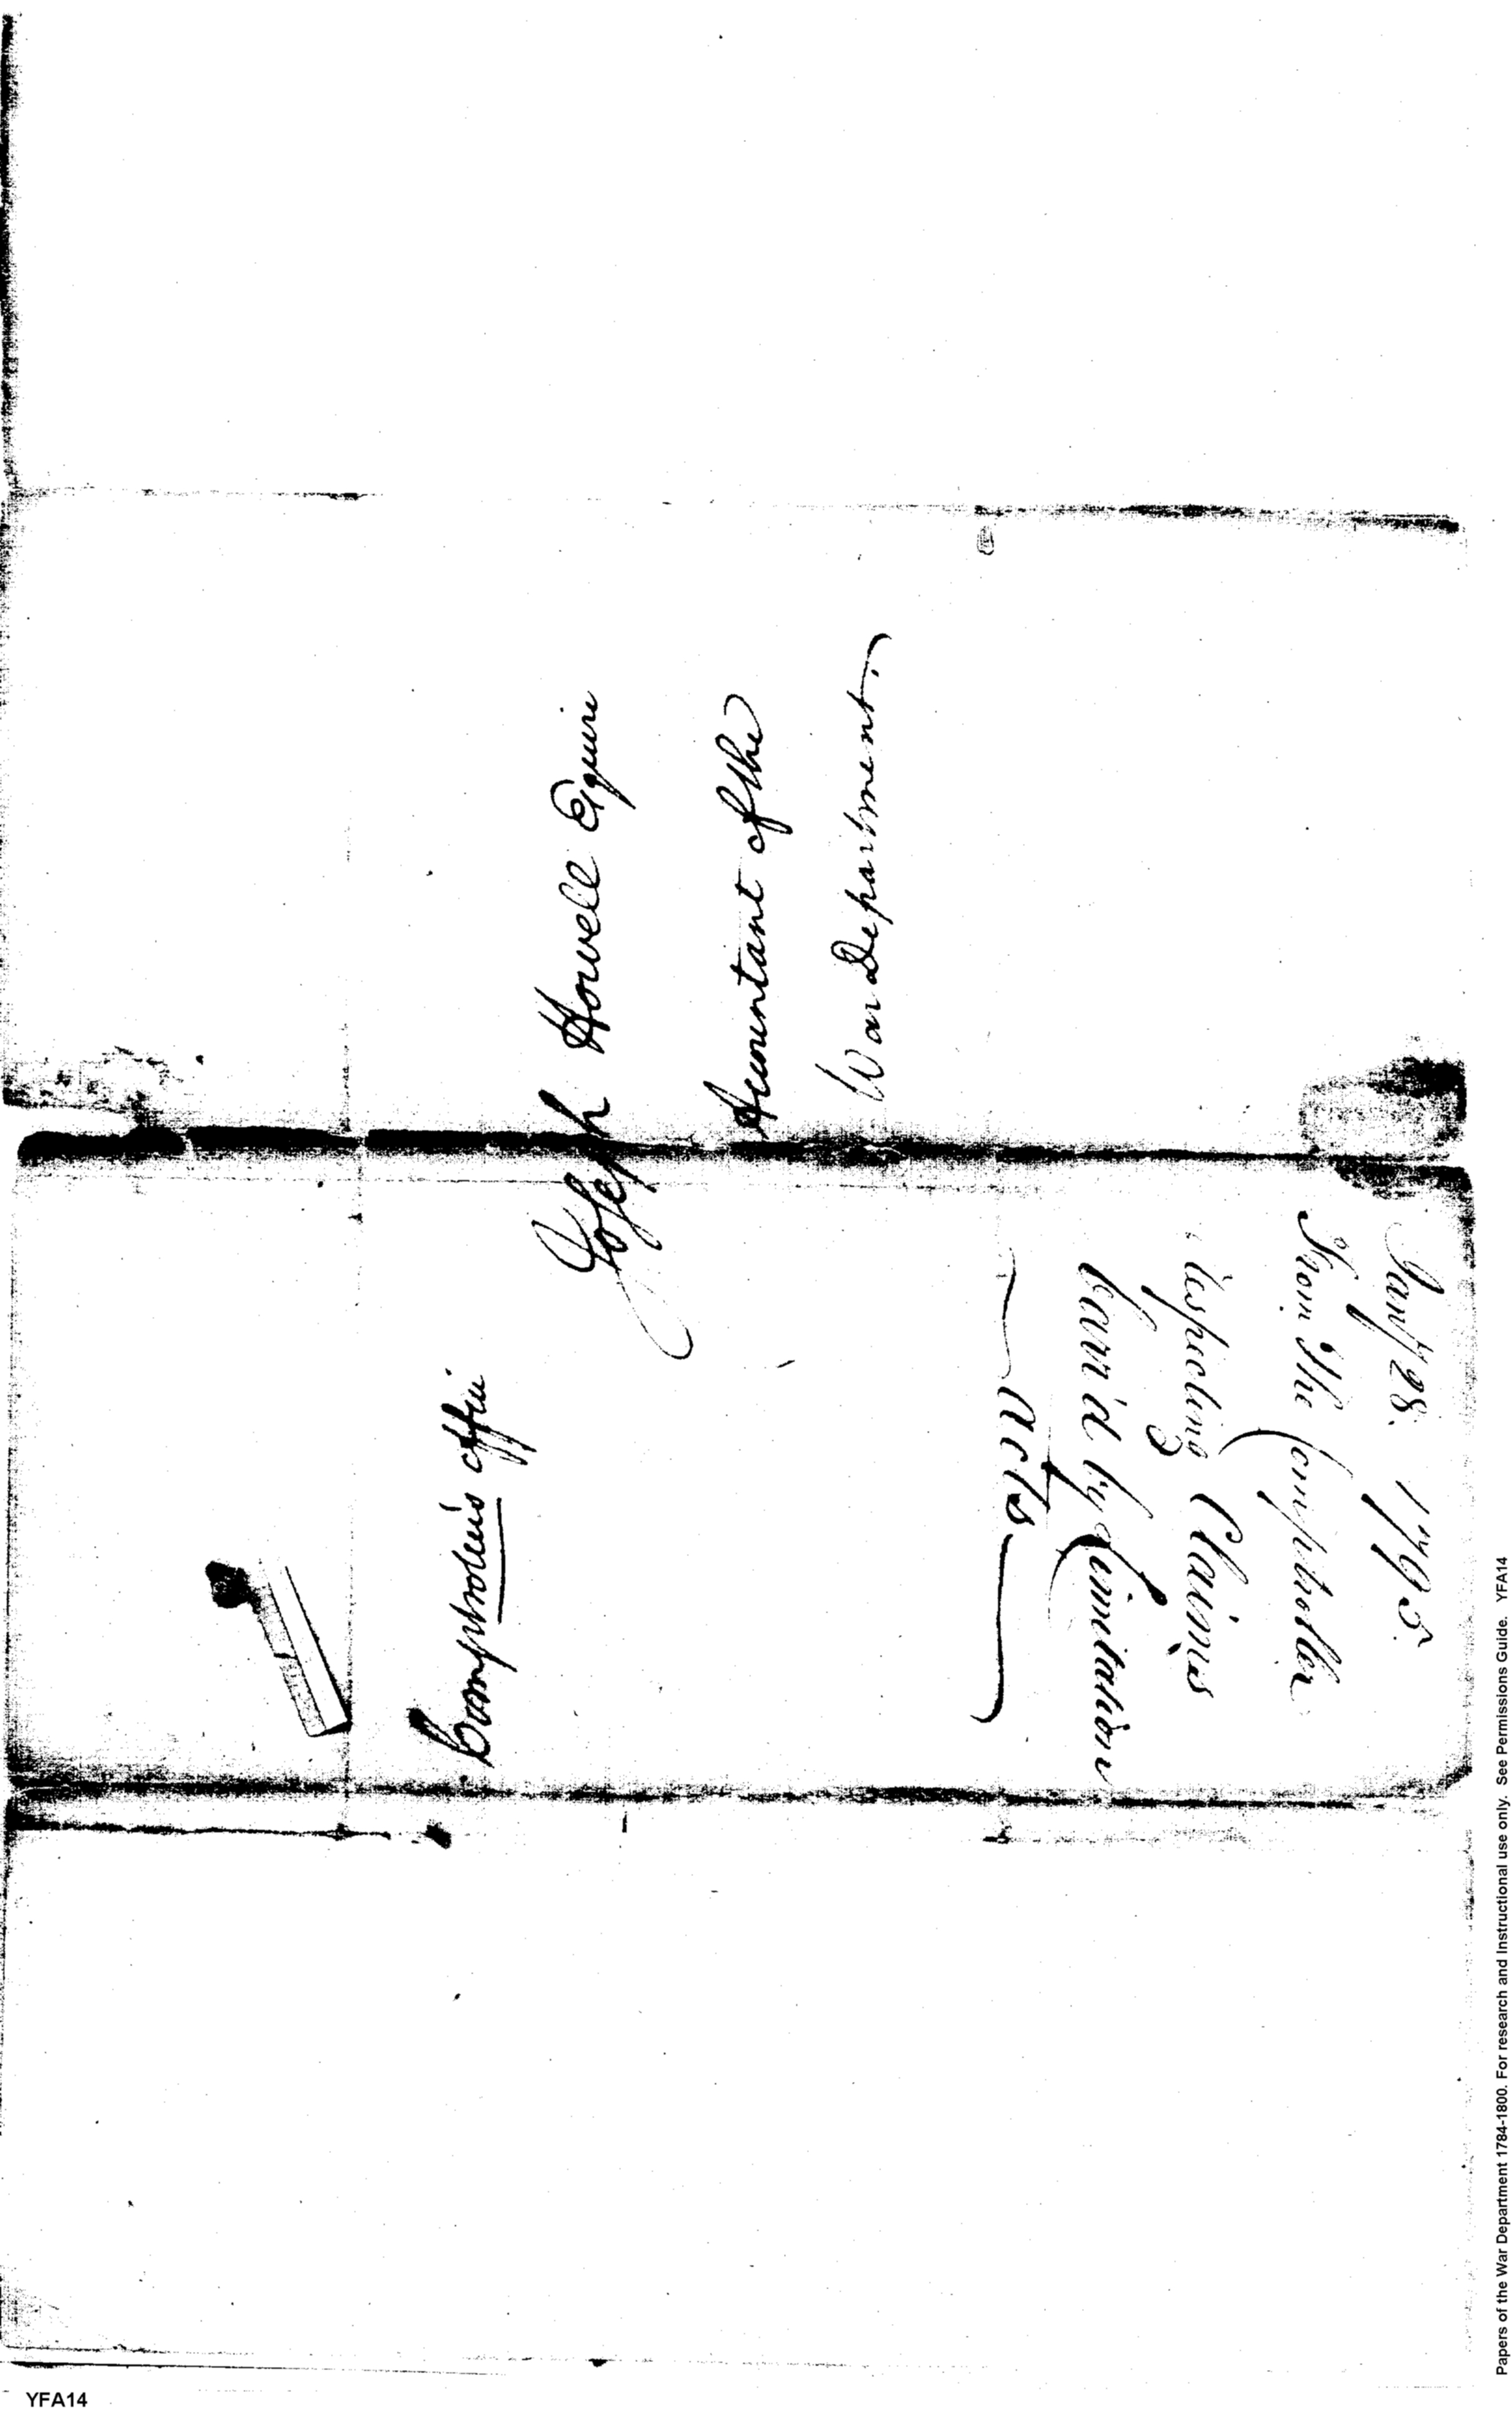 Comptroller's office
Joseph Howell Esquire
Accountant of the
War Department.
Jany 28. 1795.
From The Comptroller
respecting Claims
barr'd by Limitation
acts
YFA14
Papers of the War Department 1784-1800. For research and Instructional use only. See Permissions Guide. YFA14